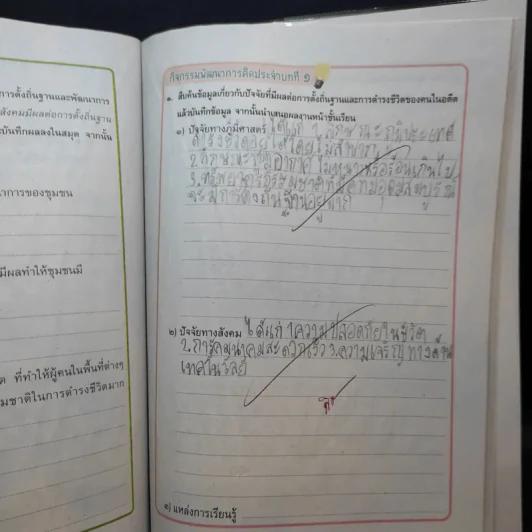 การตั้งถิ่นฐานและพัฒนาการ
สังคมมีผลต่อการตั้งถิ่นฐาน
บันทึกผลลงในสมุด จากนั้น
าการของชุมชน
มีผลทำให้ชุมชนมี
ที่ทำให้ผู้คนในพื้นที่ต่างๆ
มชาติในการดำรงชีวิตมาก
กิจกรรมพัฒนาการคิดประจำบทที่ ๑
๑. สืบค้นข้อมูลเกี่ยวกับปัจจัยที่มีผลต่อการตั้งถิ่นฐานและการดำรงชีวิตของคนในอดีต
แล้วบันทึกข้อมูล จากนั้นนำเสนอผลงานหน้าชั้นเรียน
๑) ปัจจัยทางภูมิศาสตร์ ได้แก่ 1.ลักษณะภูมิประเทศ
2.ลักษณะภูมิอากาศ ไม่หนาวหรือร้อนเกินไป
3.ทรัพยากรธรรมชาติ
จะมีการตั้งถิ่นฐานอยู่มาก
๒) ปัจจัยทางสังคม ได้แก่ 1ความปลอดภัยในชีวิต
2.การคมนาคมสะดวกเร็ว 3.ความเจริญทางด้าน
เทคโนโลยี
๓) แหล่งการเรียนรู้